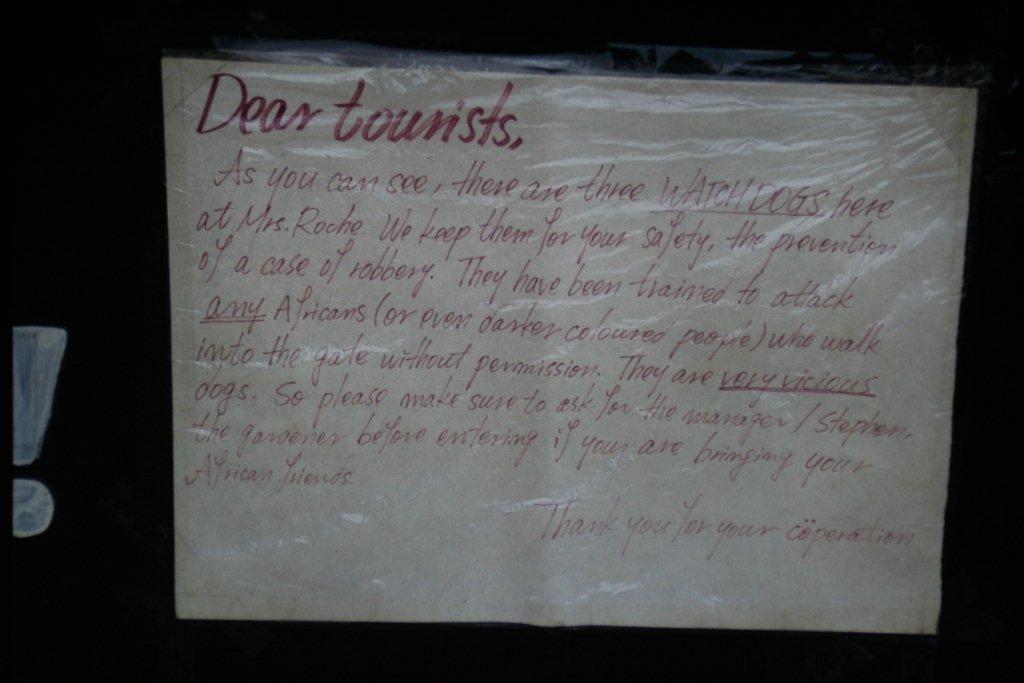 Dear tourists,
As you can see, there are three WATCHDOGS here
at Mrs. Roche. We keep them for your safety, the prevention
of a case of robbery. They have been trained to attack
any Africans (or even darker coloured people) who walk
into the gate without permission. They are very vicious
dogs. So please make sure to ask for the manager / Stephen,
the gardener before entering if your are bringing your
African friends.
Thank you for your cöperation
!